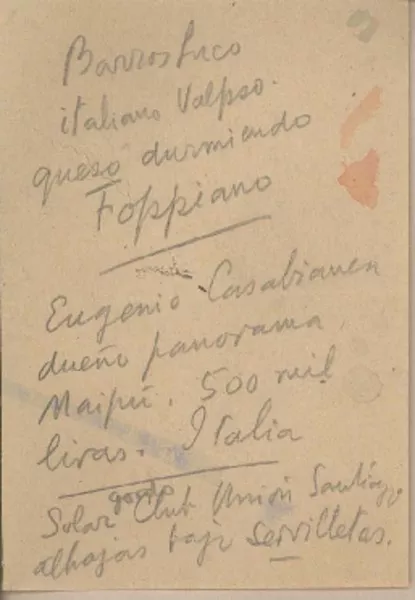 Barros Luco
italiano Valpso.
queso durmiendo
Foppiano
Eugenio Casabianca
dueño panorama
Maipú. 500 mil
liras. Italia
Solar Club Unión Santiago
alhajas bajo servilletas.